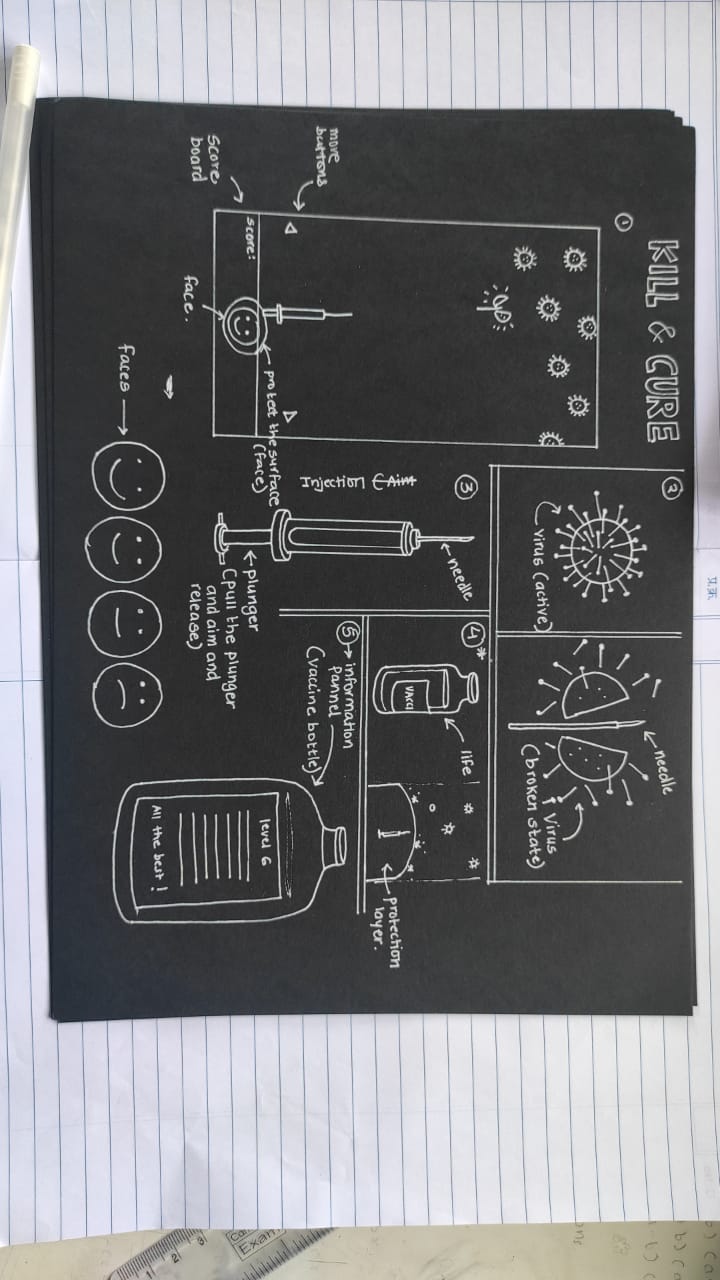 KILL & CURE
①
move
buttons
score
board
score:
face.
protect the surface
(face)
faces
②
virus (active)
needle
virus
(broken state)
③
Injection
needle
plunger
(pull the plunger
and aim and
release)
④*
VACCI
life
protection
layer.
⑤ → information
pannel
(vaccine bottle)
level 6
All the best!
Exam
1
2
3